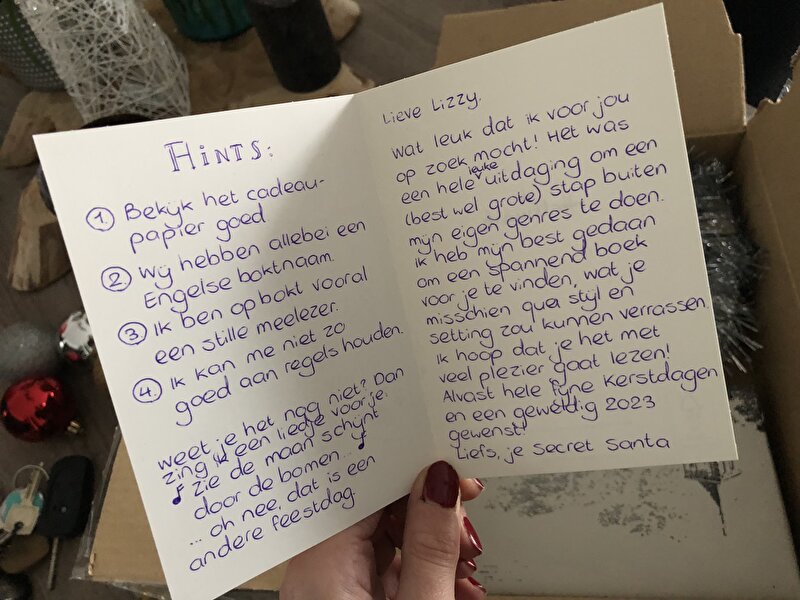 HINTS:
1. Bekijk het cadeau-
papier goed
2. Wij hebben allebei een
Engelse boktnaam.
3. Ik ben op bokt vooral
een stille meelezer.
4. Ik kan me niet zo
goed aan regels houden.
weet je het nog niet? Dan
zing ik een liedje voor je.
♪ zie de maan schijnt
door de bomen... ♪
... oh nee, dat is een
andere feestdag.
Lieve Lizzy,
wat leuk dat ik voor jou
op zoek mocht! Het was
een hele leuke uitdaging om een
(best wel grote) stap buiten
mijn eigen genres te doen.
Ik heb mijn best gedaan
om een spannend boek
voor je te vinden, wat je
misschien qua stijl en
setting zou kunnen verrassen.
Ik hoop dat je het met
veel plezier gaat lezen!
Alvast hele fijne kerstdagen
en een geweldig 2023
gewenst!
Liefs, je secret Santa